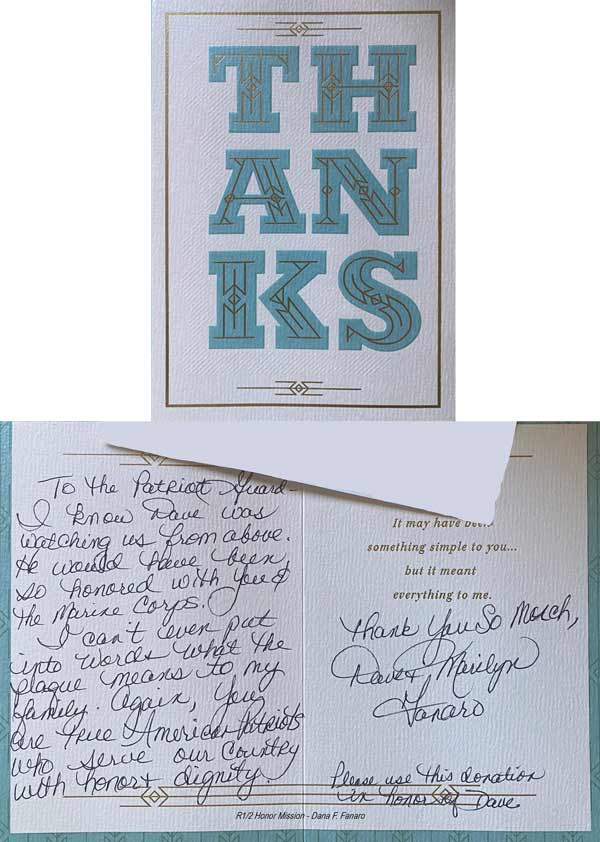 TH
AN
KS
To the Patriot Guard-
I know Dave was
watching us from above.
He would have been
so honored with you &
the Marine Corps.
I can't even put
into words what the
plaque means to my
family. Again, you
are true American Patriots
who serve our country
with honor & dignity.
It may have been
something simple to you...
but it meant
everything to me.
Thank You So Much,
Dave & Marilyn
Fanaro
Please use this donation
in honor of Dave
R1/2 Honor Mission - Dana F. Fanaro